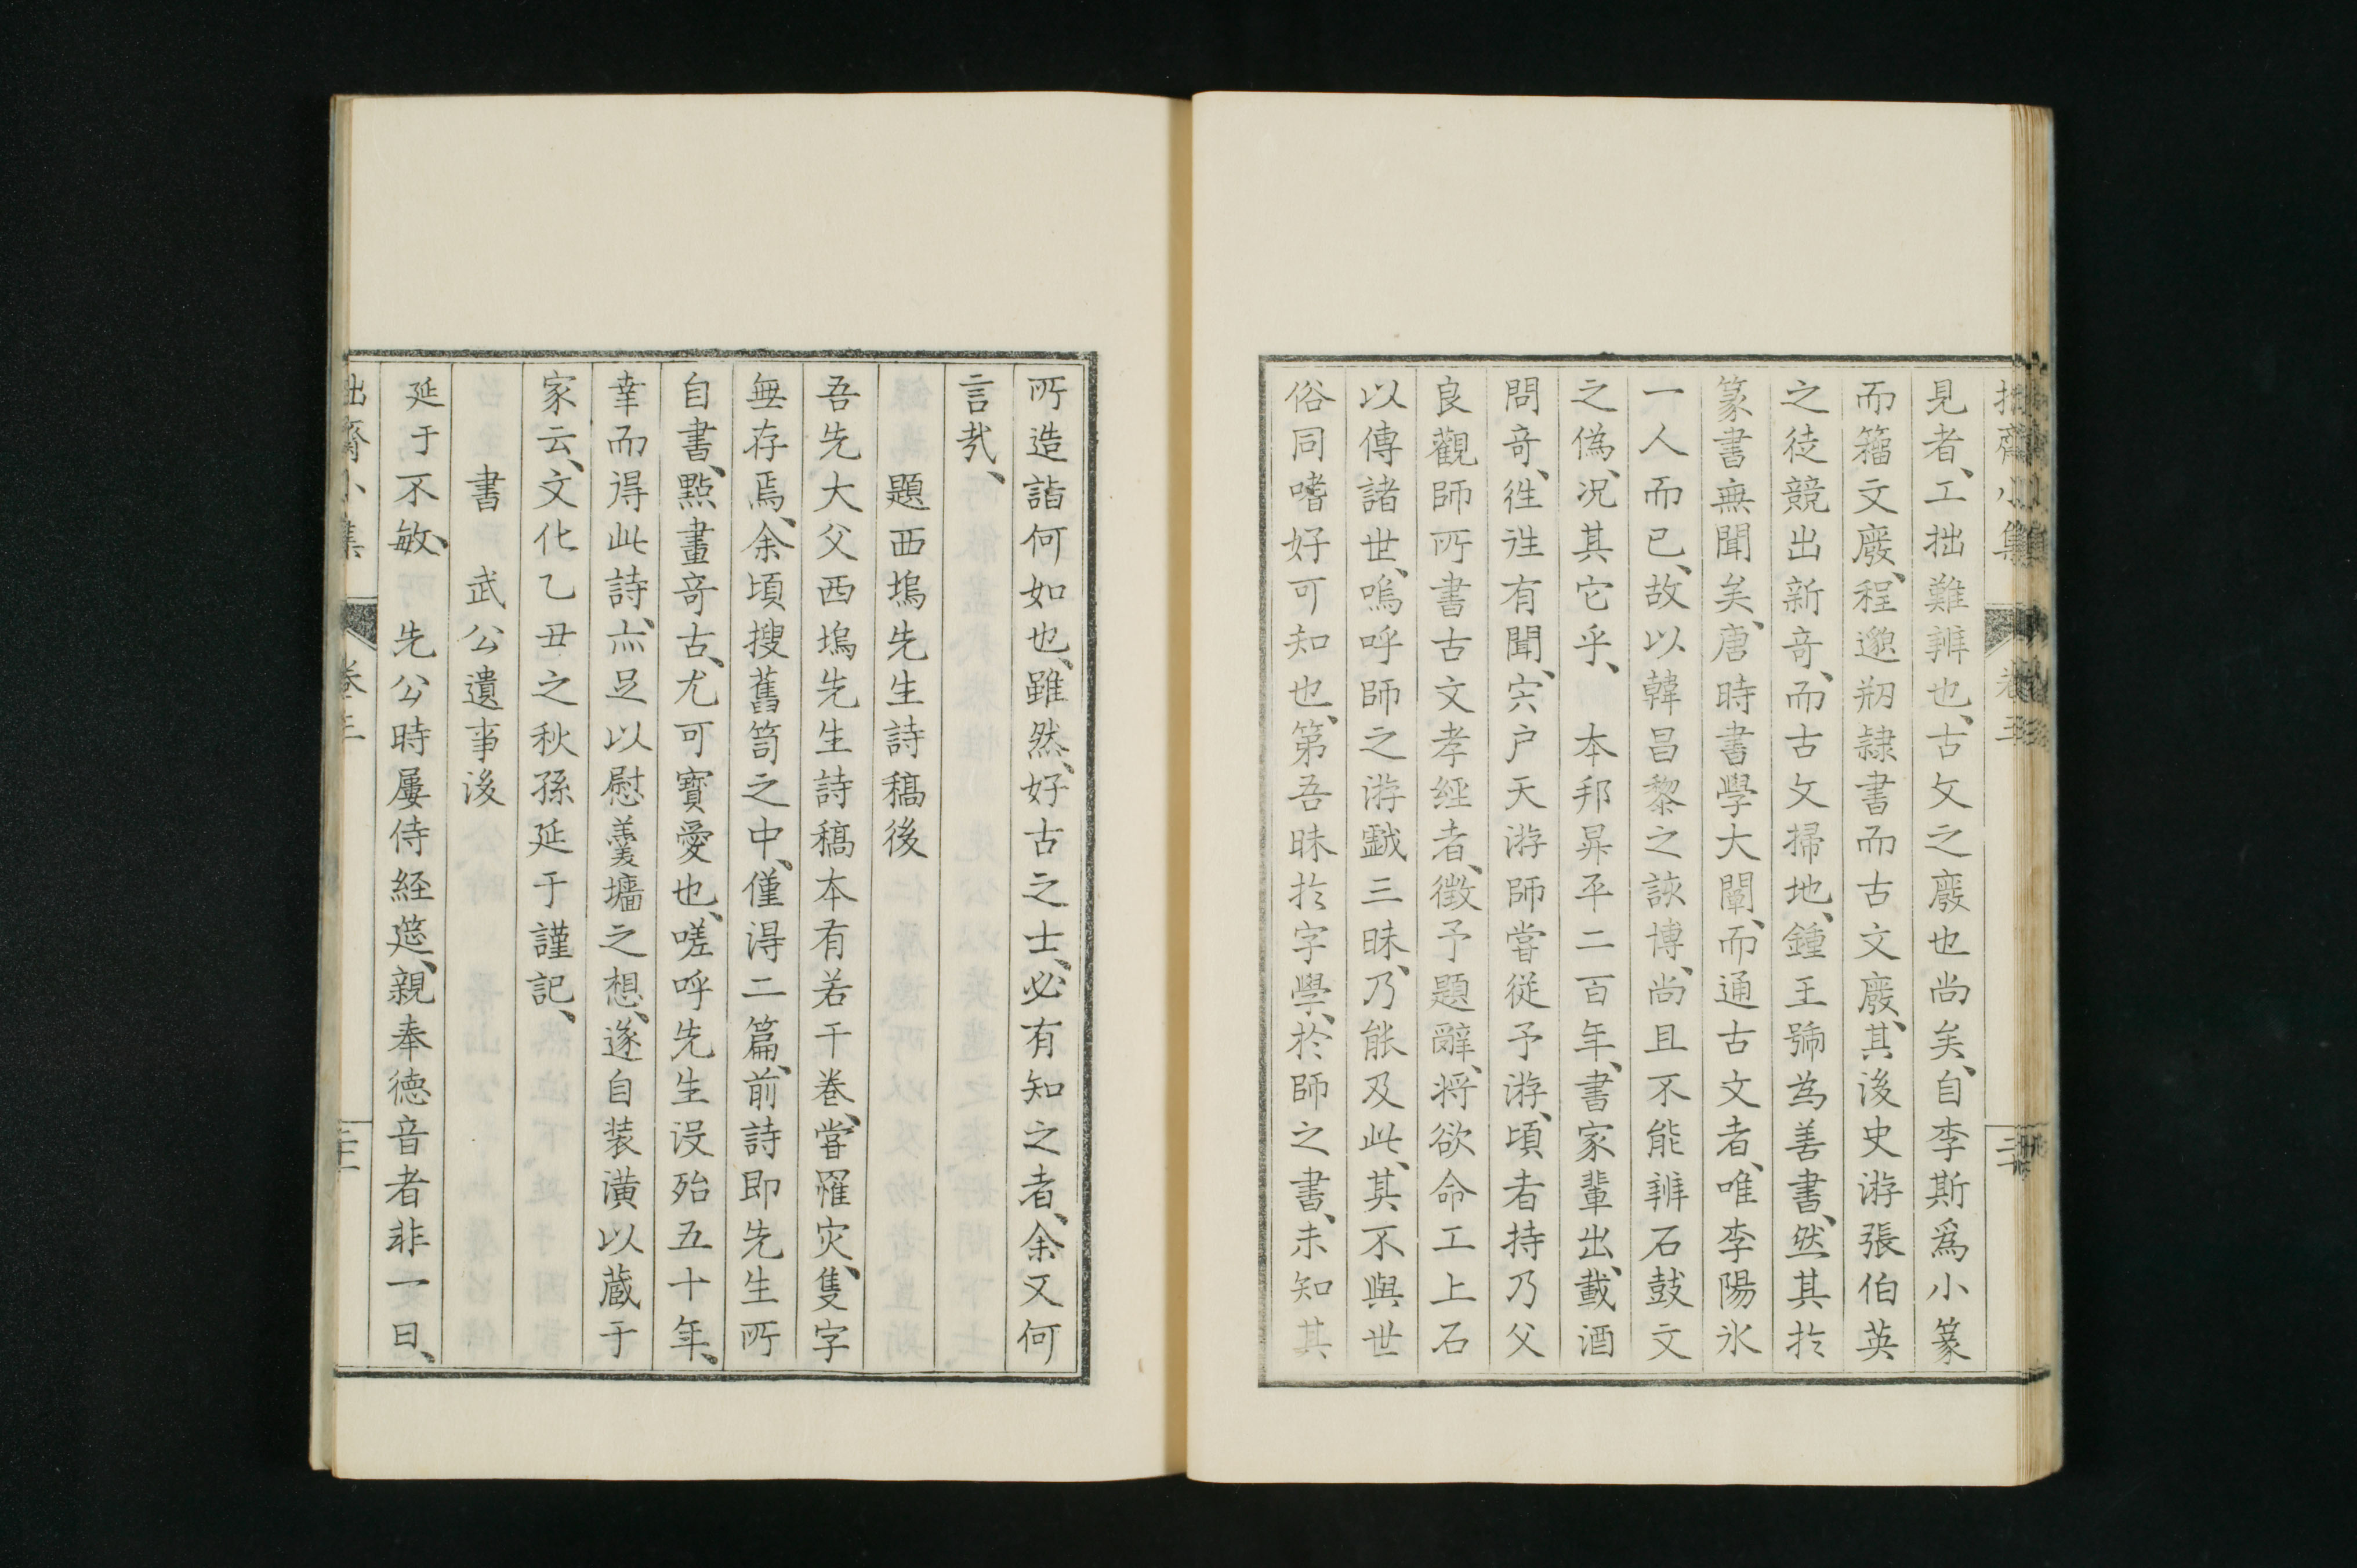 拙齋小集 卷三 三
見者、工拙難辨也、古文之廢也尚矣、自李斯爲小篆
而籀文廢、程邈刱隷書而古文廢、其後史游張伯英
之徒競出新竒、而古文掃地、鍾王號為善書、然其扵
篆書無聞矣、唐時書學大闡、而通古文者、唯李陽氷
一人而已、故以韓昌黎之該博、尚且不能辨石鼓文
之偽、况其它乎、　本邦昇平二百年、書家輩出、載酒
問竒、徃徃有聞、宍户天游師嘗從予游、頃者持乃父
良觀師所書古文孝經者、徵予題辭、将欲命工上石
以傳諸世、嗚呼師之游戱三昧、乃能及此、其不與世
俗同嗜好可知也、第吾昧扵字學、於師之書、未知其
所造詣何如也、雖然、好古之士、必有知之者、余又何
言㢤、
題西塢先生詩稿後
吾先大父西塢先生詩稿本有若干巻、嘗罹灾、隻字
無存焉、余頃搜舊笥之中、僅得二篇、前詩即先生所
自書、點畫竒古、尤可寳愛也、嗟呼先生没殆五十年、
幸而得此詩、亦足以慰羹墻之想、遂自装潢以蔵于
家云、文化乙丑之秋孫延于謹記、
書　武公遺事後
延于不敏、　先公時屢侍経筵、親奉徳音者非一日、
拙齋小集 卷三 三